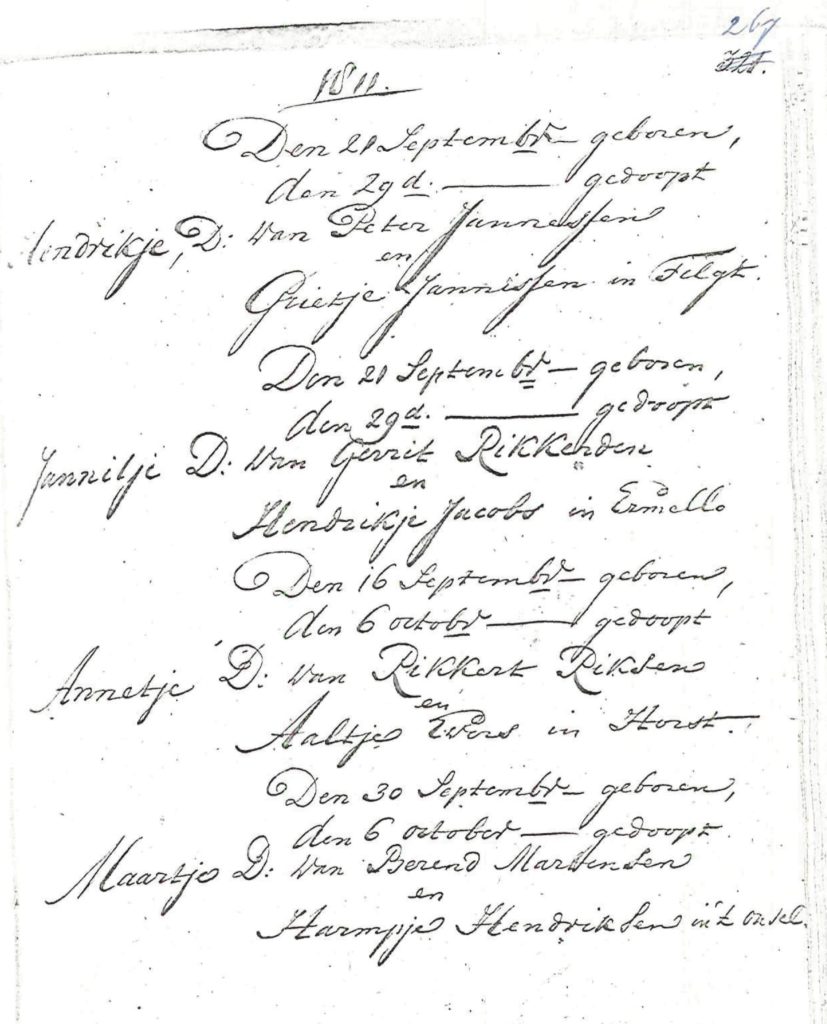 267
1811.
Den 21 Septembr — geboren,
den 29d. — gedoopt
Hendrikje, D: van Peter Jannessen
en
Grietje Jannissen in Telgt.
Den 21 Septembr — geboren,
den 29d. — gedoopt
Jannitje D: van Gerrit Rikkerden
en
Hendrikje Jacobs in Ermello
Den 16 Septembr — geboren,
den 6 octobr — gedoopt
Annetje D: van Rikkert Riksen
en
Aaltje Evers in Horst.
Den 30 Septembr — geboren,
den 6 october — gedoopt.
Maartje D: van Berend Martensen
en
Harmpje Hendriksen in't